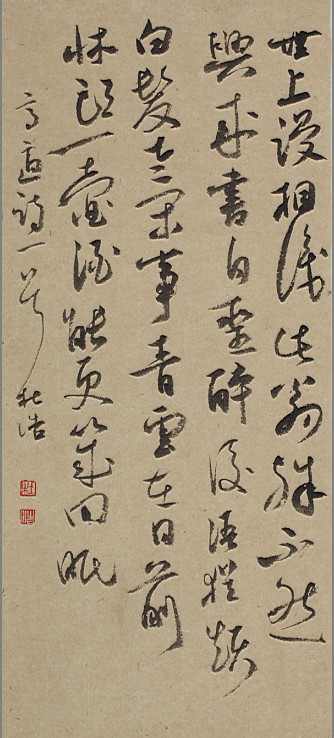 世上謾相識此翁殊不然
興來書自聖醉後語猶顛
白髮老閑事青雲在目前
牀頭一壺酒能更幾回眠
高適詩一首 杜浩